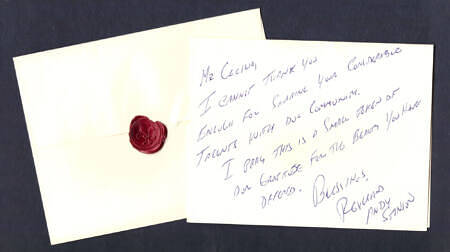 Mr Cecil,
I cannot thank you
enough for sharing your considerable
talents with our community.
I pray this is a small token of
our gratitude for the beauty you have
offered.
Blessings,
Reverend
Andy